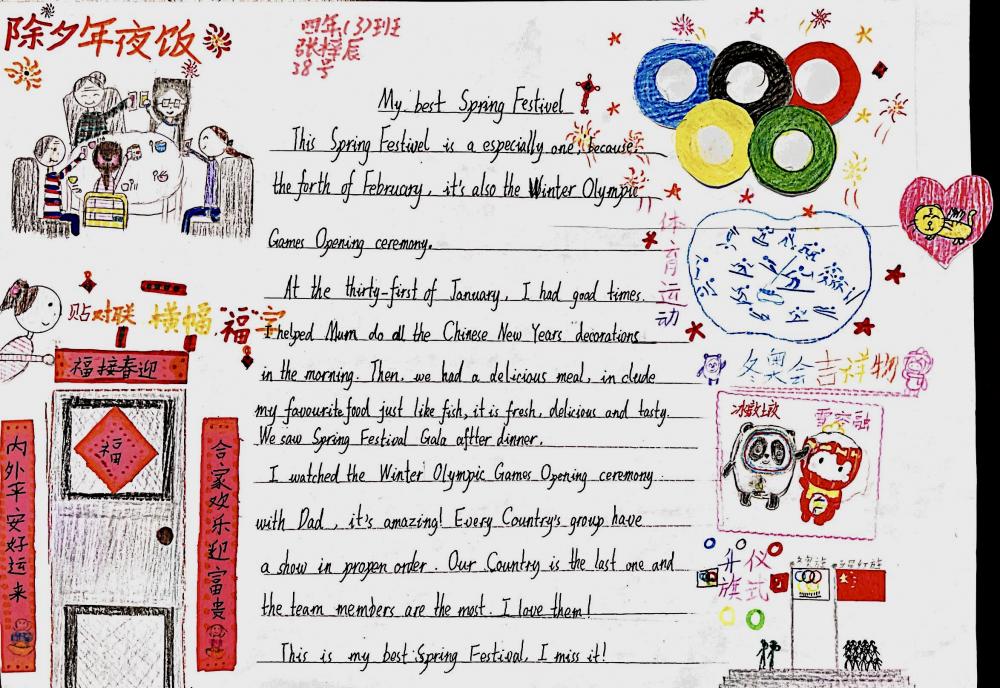 除夕年夜饭
四年(3)班
张梓辰
38号
My best Spring Festivel
This Spring Festivel is a especially one, because
the forth of February, it's also the Winter Olympic
Games Opening ceremony.
At the thirty-first of January, I had good times.
I helped Mum do all the Chinese New Years decorations
in the morning. Then, we had a delicious meal, in clude
my favourite food just like fish, it is fresh, delicious and tasty.
We saw Spring Festival Gala aftter dinner.
I watched the Winter Olympic Games Opening ceremony
with Dad, it's amazing! Every Country's group have
a show in propen order. Our Country is the last one and
the team members are the most. I love them!
This is my best Spring Festival, I miss it!
贴对联 横幅 "福"字
福接春迎
福
内外平安好运来
合家欢乐迎富贵
体育运动
冬奥会吉祥物
冰墩墩
雪容融
升旗仪式